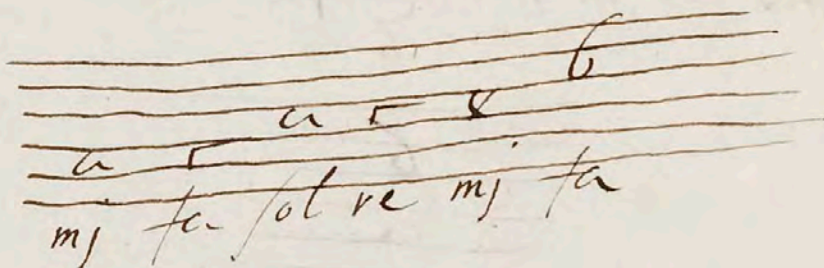 a r a r 8 b
mj fa sol re mj fa